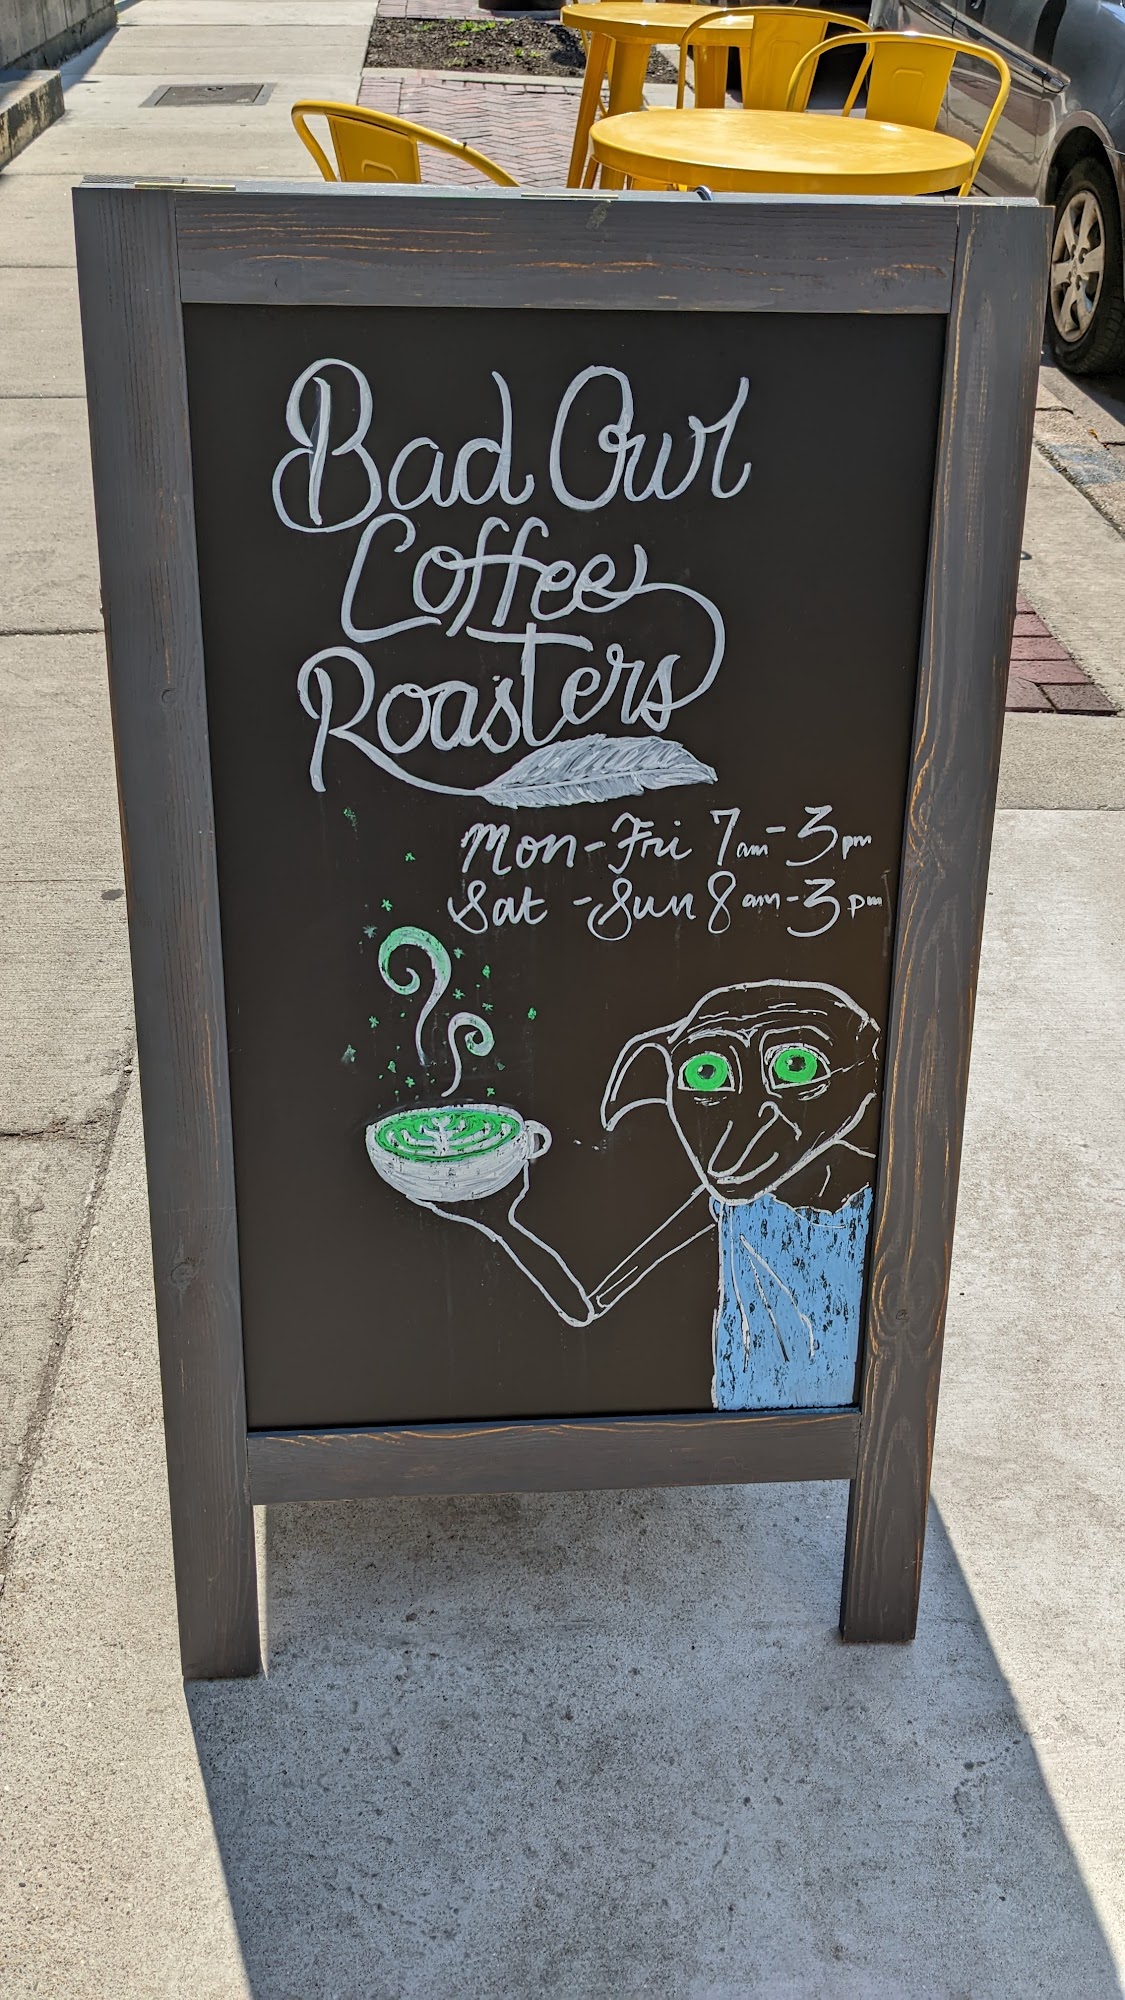 Bad Owl
Coffee
Roasters
Mon-Fri 7am-3pm
Sat-Sun 8am-3pm